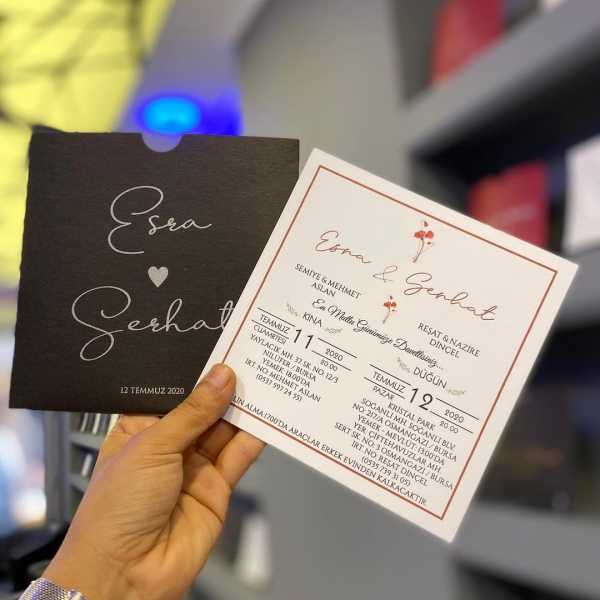 Esra
Serhat
12 TEMMUZ 2020
Esra & Serhat
SEMİYE & MEHMET
ASLAN
REŞAT & NAZİRE
DİNÇEL
En Mutlu Günümüze Davetlisiniz...
KINA
TEMMUZ 11 2020
CUMARTESİ 20.00
YAYLACIK MH. 37.SK. NO 12/3
NİLÜFER / BURSA
YEMEK: 18:00'DA
İRT. NO: MEHMET ASLAN
DÜĞÜN
TEMMUZ 12 2020
PAZAR 20.00
KRİSTAL PARK
SOĞANLI MH. SOĞANLI BLV.
OSMANGAZİ / BURSA
YEMEK - MEVLÜT: 13:00'DA
YER: ÇİFTEHAVUZLAR MH.
SERT SK. OSMANGAZİ / BURSA
İRT. NO: REŞAT DİNÇEL
ALMA 17:00'DA ARAÇLAR ERKEK EVİNDEN KALKACAKTIR